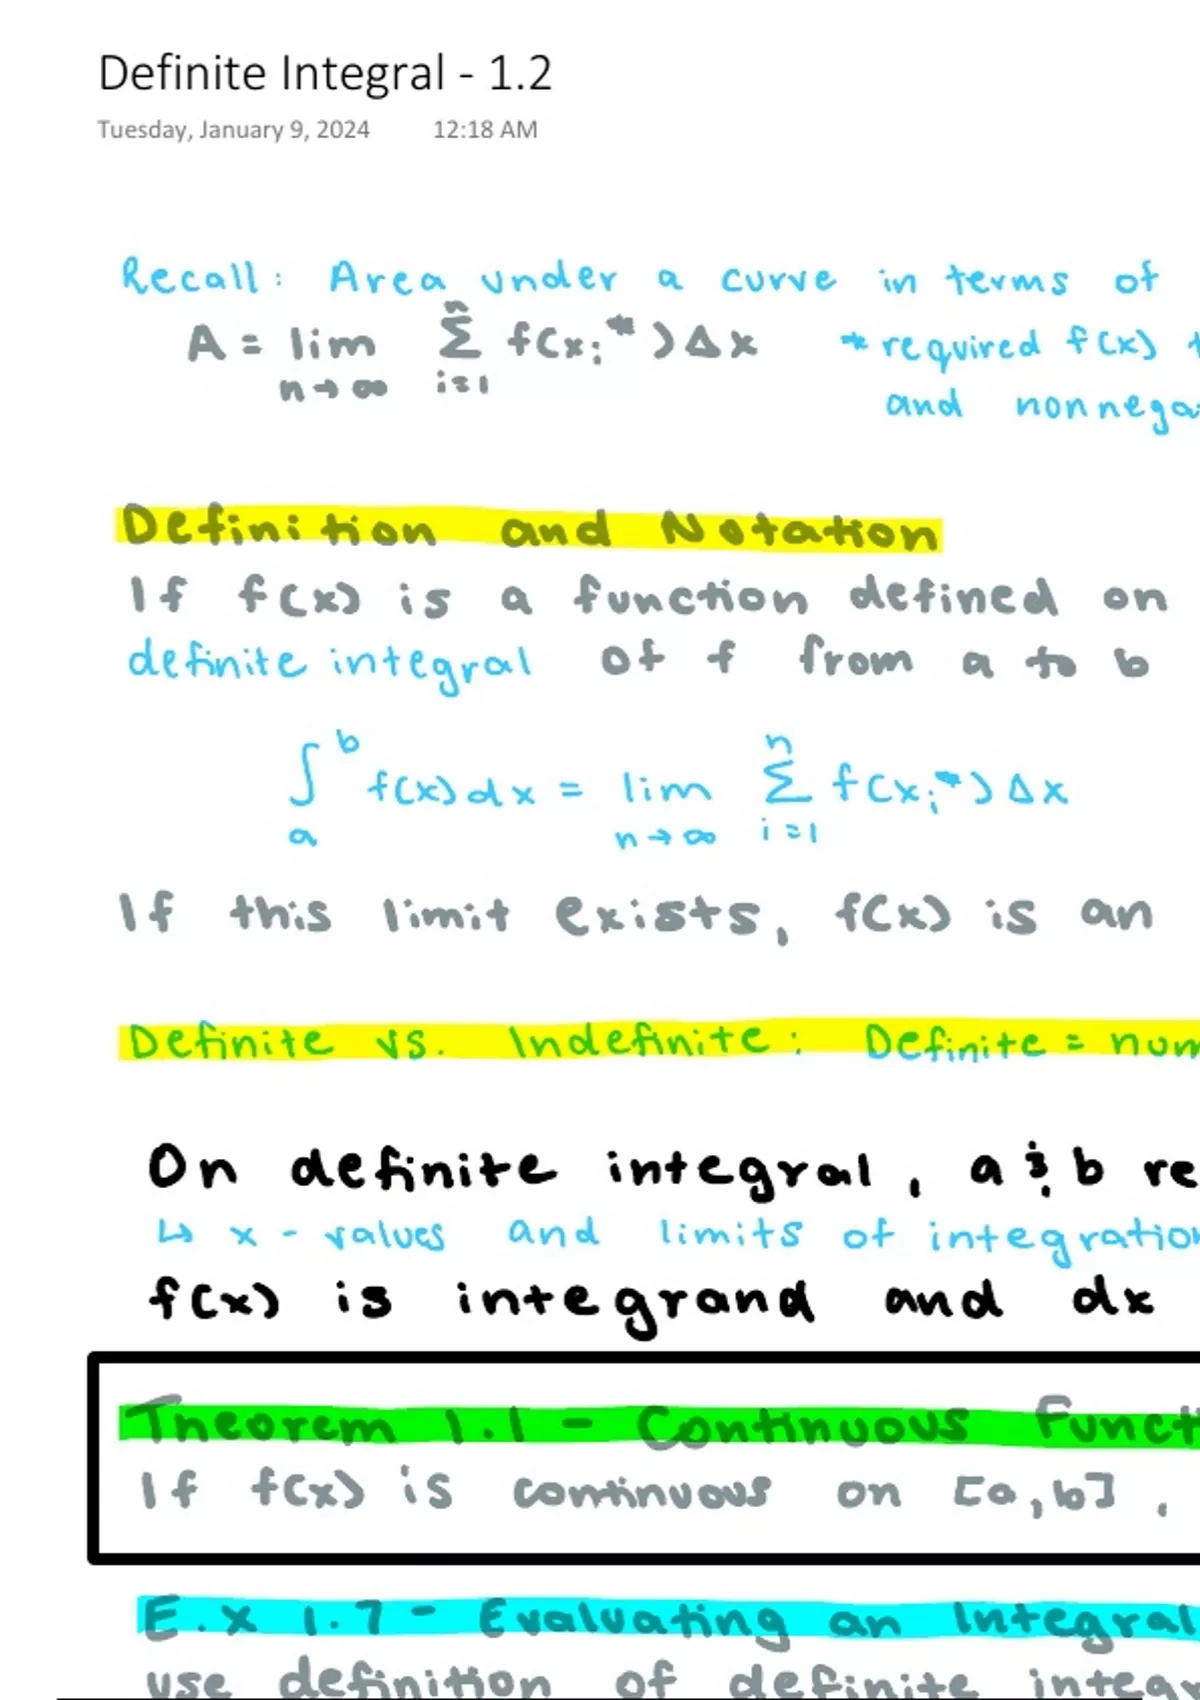 Definite Integral - 1.2
Tuesday, January 9, 2024 12:18 AM
Recall: Area under a curve in terms of
A = lim n→∞ n Σ i=1 f(xᵢ*)Δx * required f(x)
and nonnega
Definition and Notation
If f(x) is a function defined on
definite integral of f from a to b
∫ b a f(x)dx = lim n→∞ n Σ i=1 f(xᵢ*)Δx
If this limit exists, f(x) is an
Definite vs. Indefinite: Definite = num
On definite integral, a & b re
↳ x-values and limits of integration
f(x) is integrand and dx
Theorem 1.1 - Continuous Funct
If f(x) is continuous on [a,b],
E.x 1.7 - Evaluating an Integral
use definition of definite integr